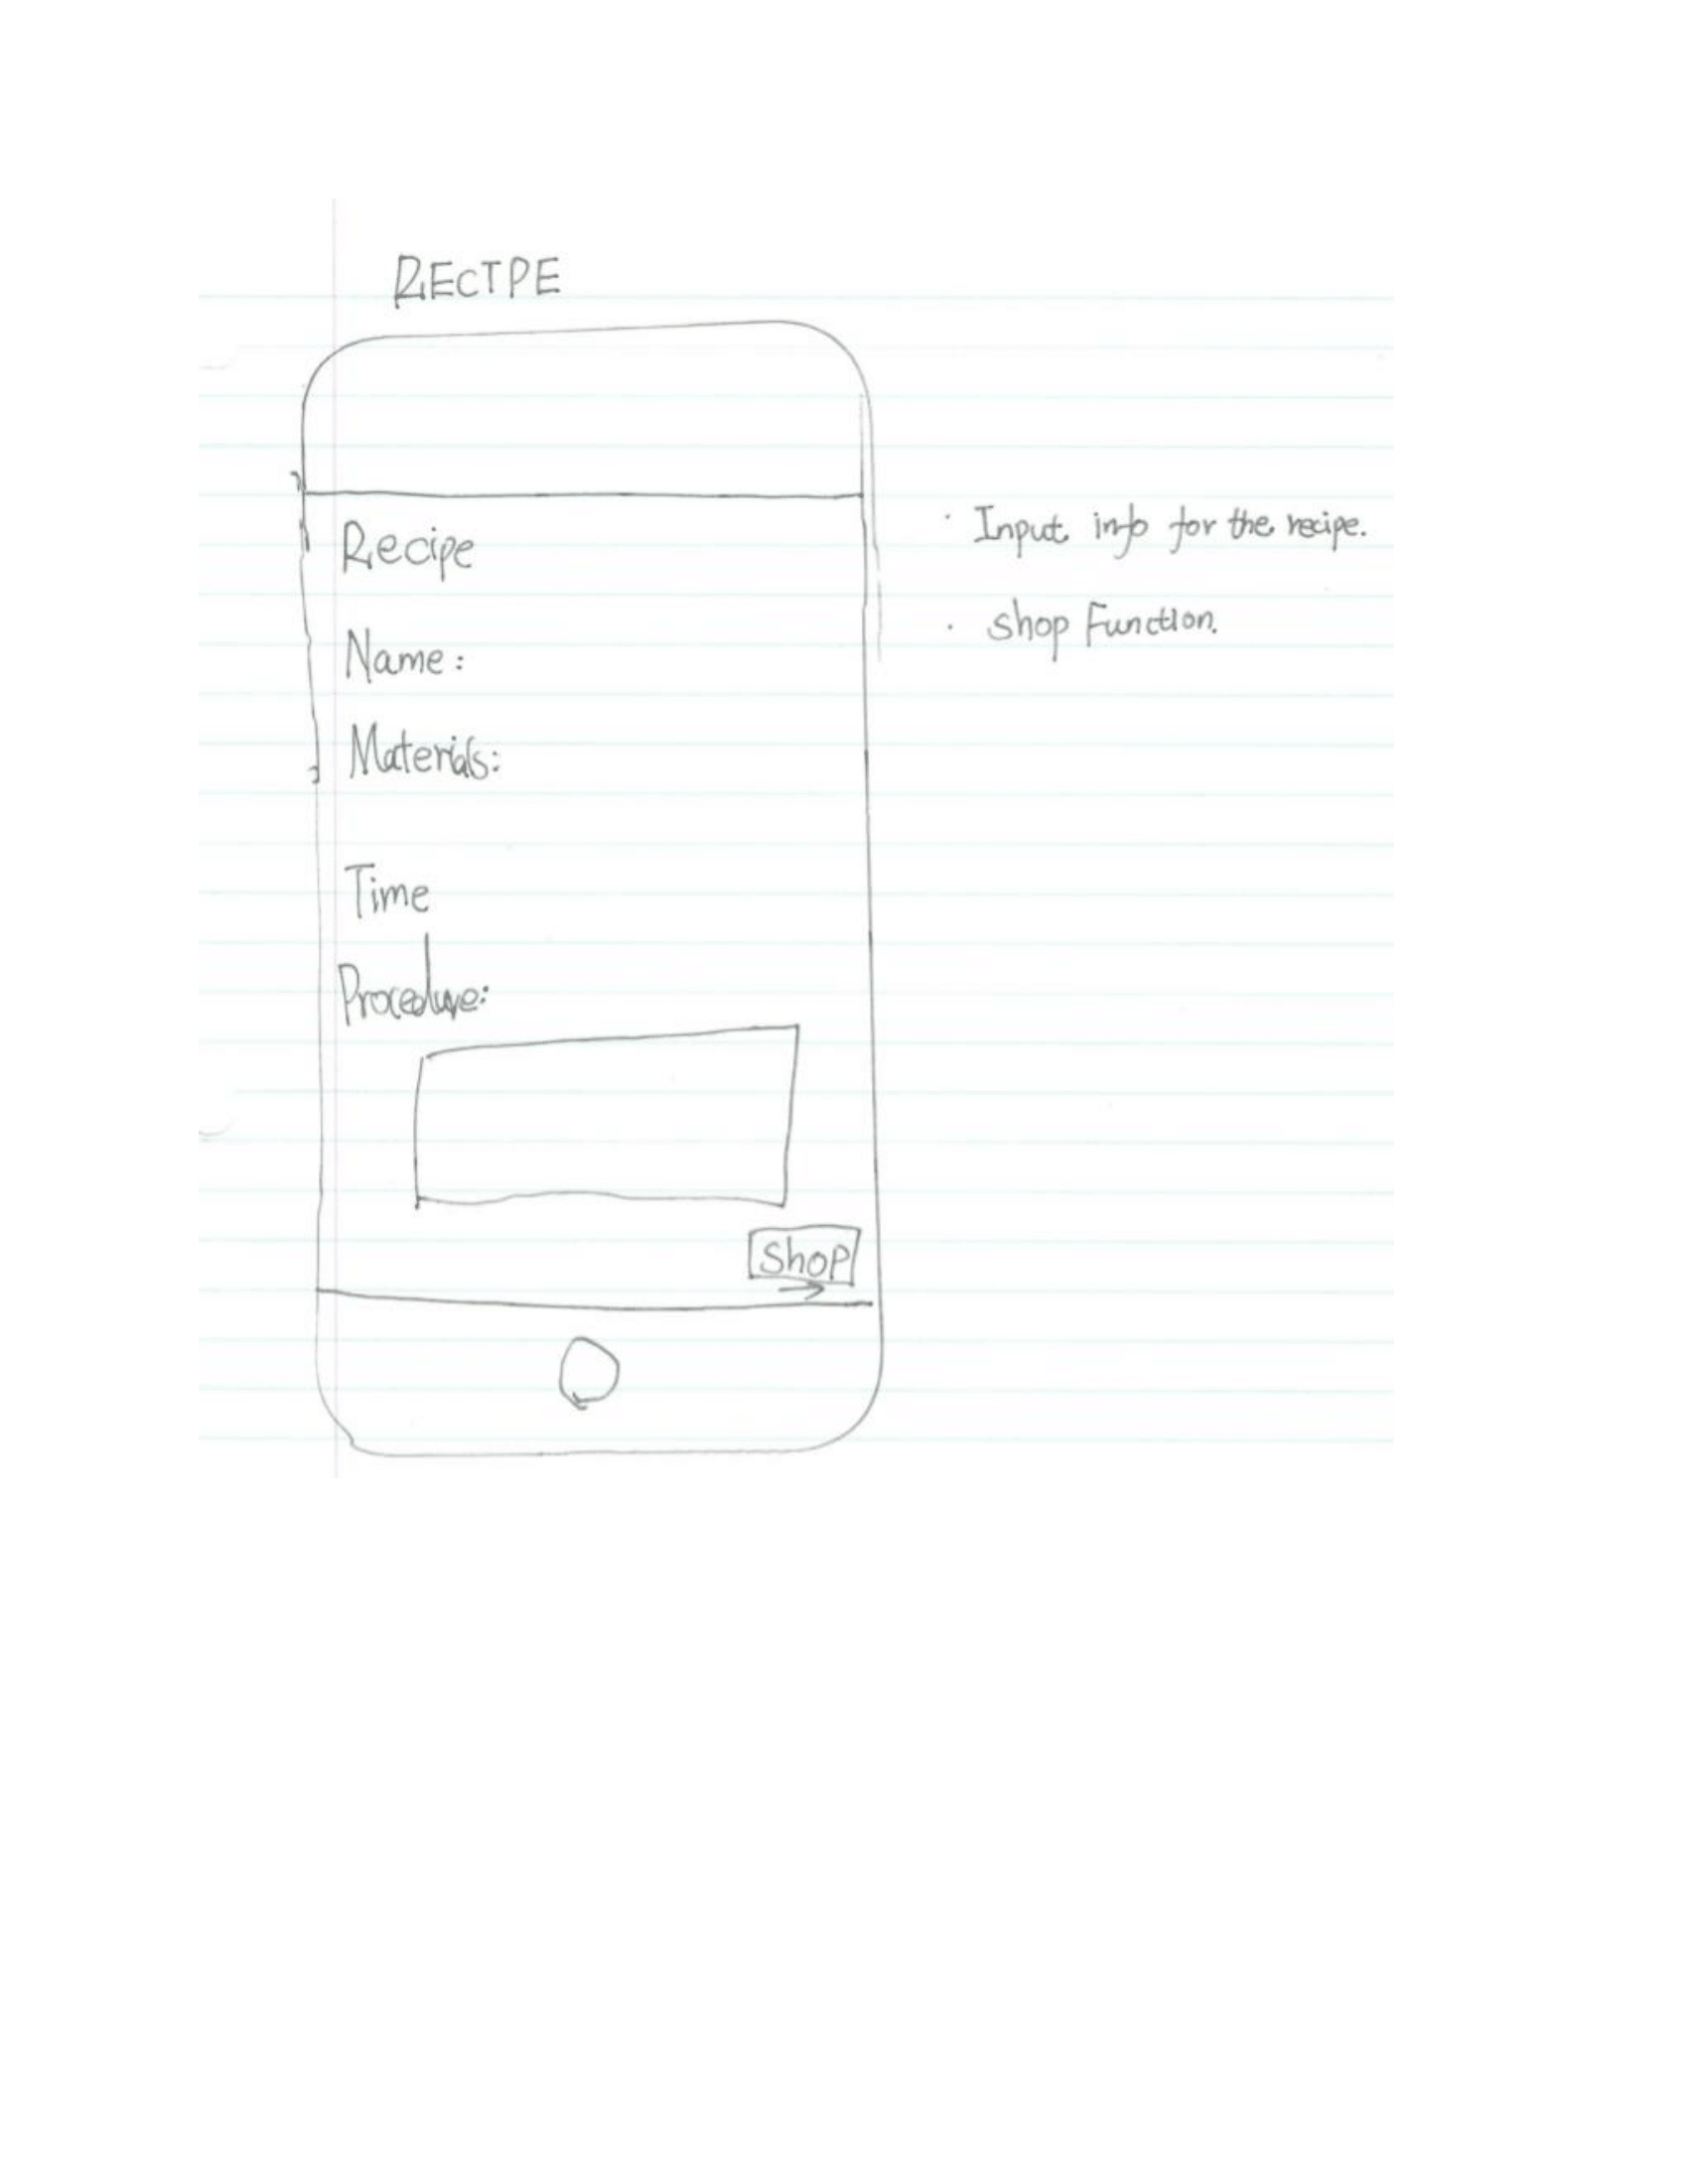 RECIPE
Recipe
Name:
Materials:
Time
Procedure:
Shop
· Input info for the recipe.
· Shop Function.